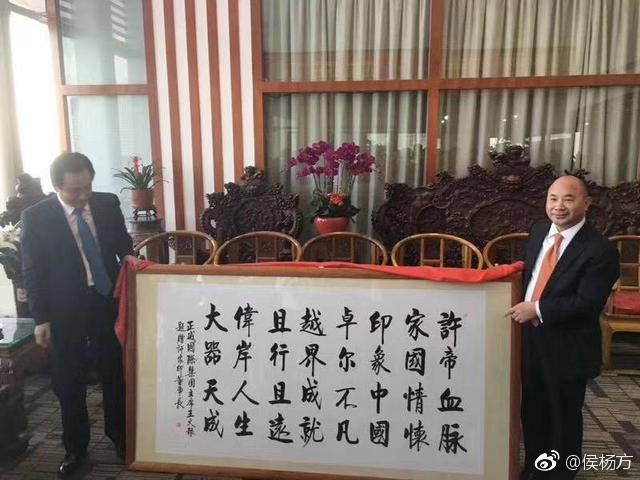 許帝血脈
家國情懷
印象中國
卓尔不凡
越界成就
且行且遠
偉岸人生
大器天成
正威國際集團主席王文銀
題贈許家印董事長
@侯杨方